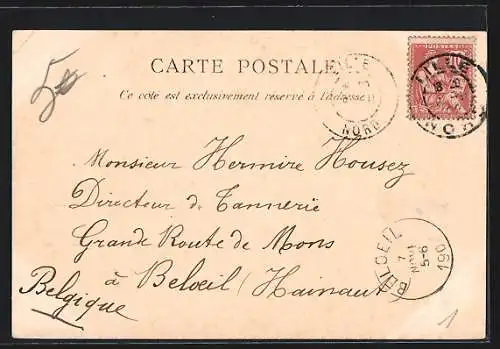 CARTE POSTALE
Ce côté est exclusivement réservé à l'adresse
LILLE
NORD
POSTES
LILLE
NORD
Monsieur Hermire Housez
Directeur de Tannerie
Grande Route de Mons
à Beloeil (Hainaut)
Belgique
BELOEIL
7
5-6
190
1